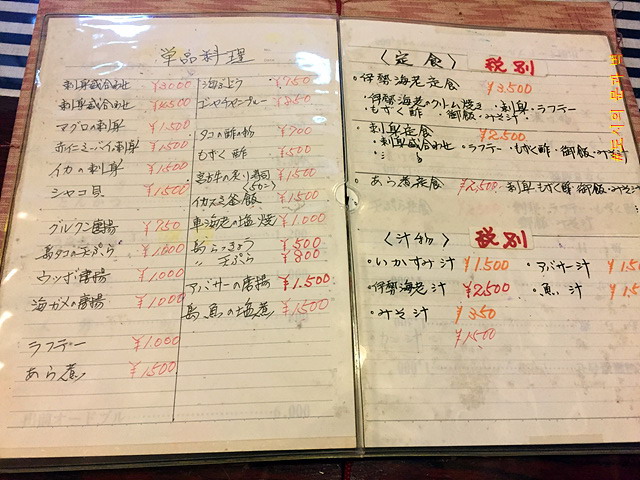 単品料理
刺身盛合わせ ¥3000
刺身盛合わせ
マグロの刺身 ¥1,500
赤イニーバイの刺身 ¥1,500
イカの刺身 ¥1,500
シャコ貝 ¥1,500
グルクン唐揚 ¥750
島タコの天ぷら
ウツボ唐揚 ¥1,000
海ガメの唐揚 ¥1,000
ラフテー ¥1,000
あら煮 ¥1,500
海ぶどう ¥750
ゴーヤチャンプルー ¥850
タコの酢の物 ¥700
もずく酢 ¥500
宮古牛の炙り寿司 ¥1,500
イカスミ釜飯 ¥1,500
車海老の塩焼 ¥1,000
島らっきょう ¥500
〃 天ぷら ¥800
アバサーの唐揚 ¥1.500
島魚の塩煮 ¥1,500
〈定食〉 税別
・伊勢海老定食 ¥3,500
・伊勢海老のクリーム焼き・刺身・ラフテー
・もずく酢 ・御飯・みそ汁
・刺身定食 ¥2,500
・刺身盛合わせ ・ラフテー・もずく酢・御飯・みそ汁
・あら煮定食 ¥2,500 刺身・もずく酢・御飯・みそ汁
〈汁物〉 税別
・いかすみ汁 ¥1.500
・アバサー汁
・伊勢海老汁 ¥2,500
・魚汁
・みそ汁 ¥350
¥1,500